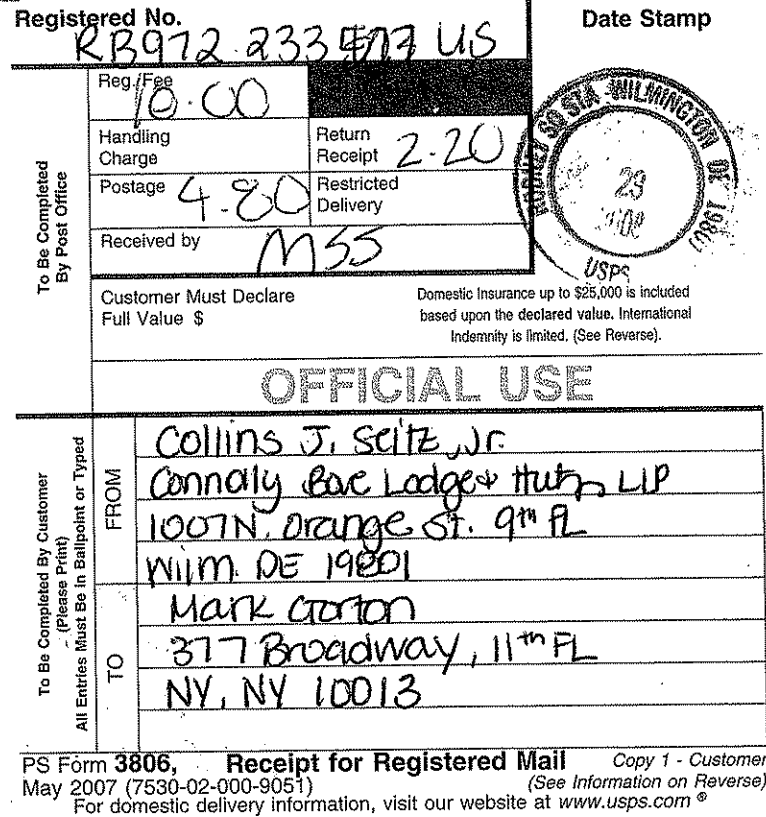 Registered No.
RB972 233 US
Date Stamp
To Be Completed
By Post Office
Reg. Fee
10.00
Handling
Charge
Return
Receipt 2.20
Postage 4.80
Restricted
Delivery
Received by MSS
RODNEY SQ STA WILMINGTON DE 19801
29
USPS
Customer Must Declare
Full Value $
Domestic Insurance up to $25,000 is included
based upon the declared value. International
Indemnity is limited. (See Reverse).
OFFICIAL USE
To Be Completed By Customer
(Please Print)
All Entries Must Be in Ballpoint or Typed
FROM
Collins J. Seitz, Jr.
Connolly Bove Lodge & Hutz LLP
1007 N. Orange St. 9th FL
Wilm. DE 19801
TO
Mark Gorton
377 Broadway, 11th FL
NY, NY 10013
PS Form 3806, Receipt for Registered Mail Copy 1 - Customer
May 2007 (7530-02-000-9051) (See Information on Reverse)
For domestic delivery information, visit our website at www.usps.com ®